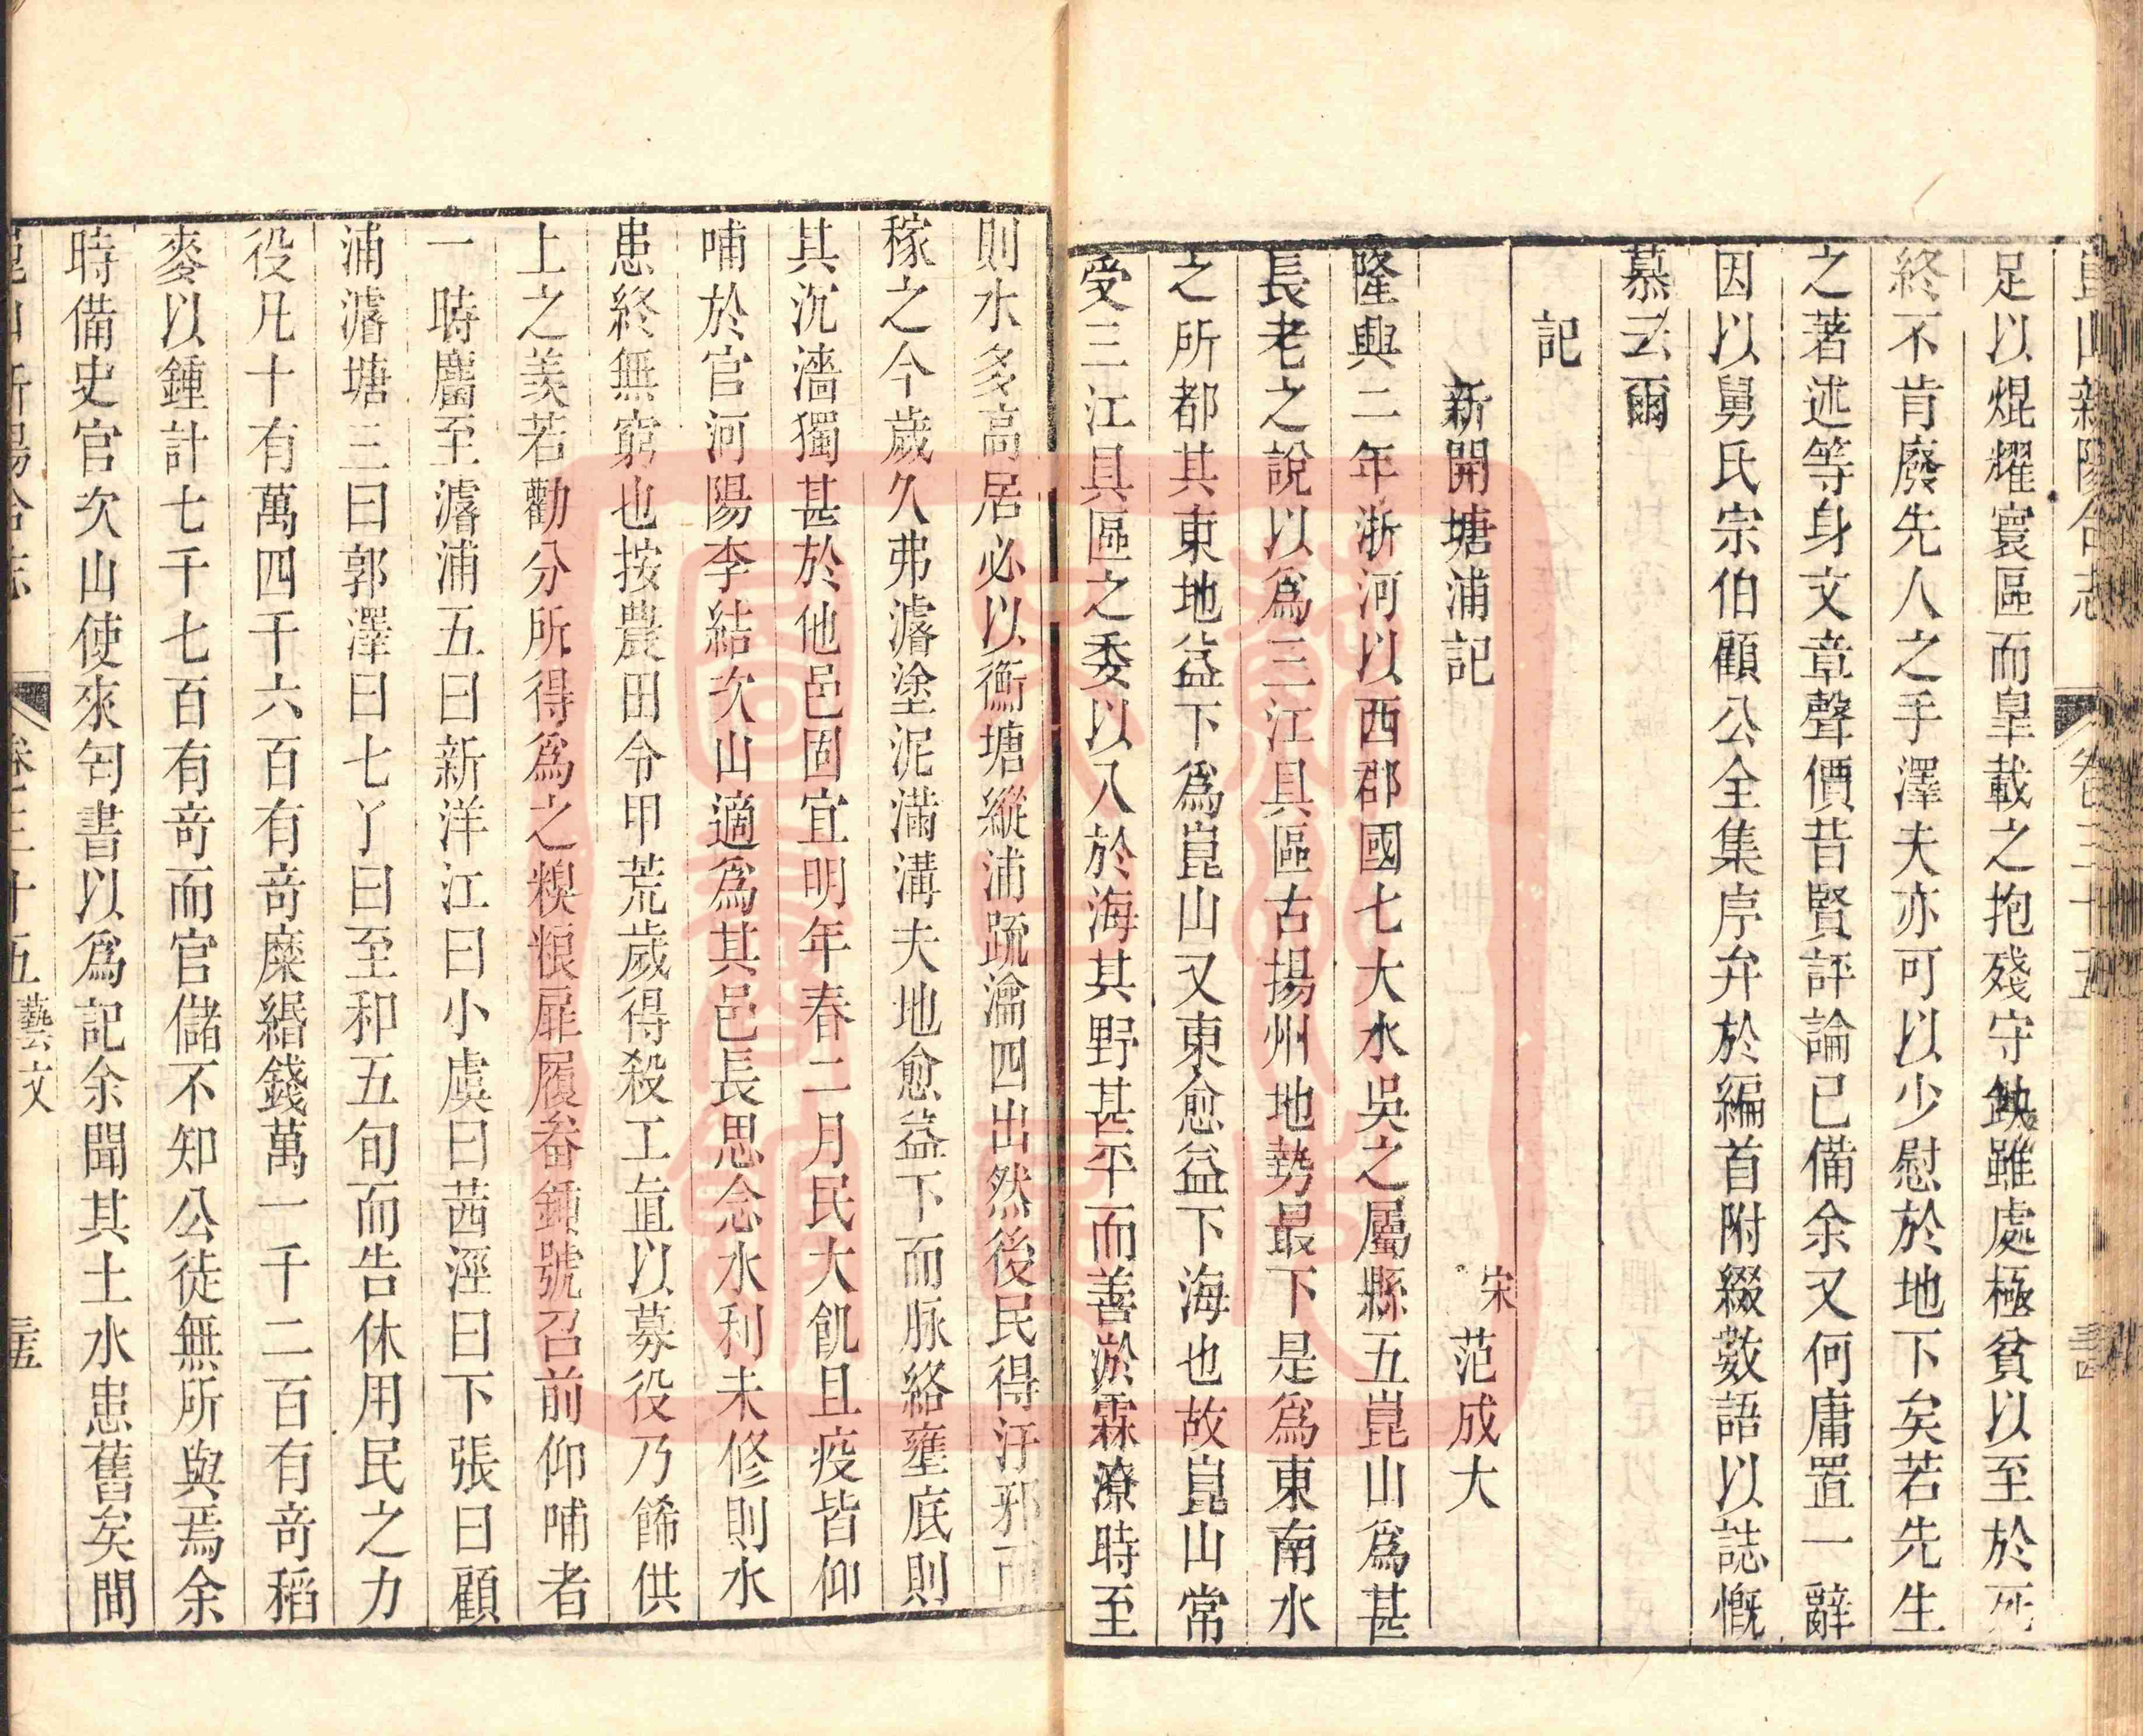 崑山新陽合志 卷三十五
足以焜耀寰區而皐載之抱殘守缺雖處極貧以至於死
終不肯廢先人之手澤夫亦可以少慰於地下矣若先生
之著述等身文章聲價昔賢評論已備余又何庸置一辭
因以舅氏宗伯顧公全集序弁於編首附綴數語以誌慨
慕云爾
記
新開塘浦記 宋范成大
隆興二年浙河以西郡國七大水吳之屬縣五崑山爲甚
長老之說以爲三江具區古揚州地勢最下是爲東南水
之所都其東地益下爲崑山又東愈益下海也故崑山常
受三江具區之委以入於海其野甚平而善淤霖潦時至
則水多高居必以衡塘縱浦疏瀹四出然後民得汙邪而
稼之今歲久弗濬塗泥滿溝夫地愈益下而脉絡壅底則
其沉濇獨甚於他邑固宜明年春二月民大飢且疫皆仰
哺於官河陽李結次山適爲其邑長思念水利未修則水
患終無窮也按農田令甲荒歲得殺工直以募役乃餙供
上之羨若勸分所得爲之糗粮屝履畚鍤號召前仰哺者
一時麕至濬浦五曰新洋江曰小虞曰茜涇曰下張曰顧
浦濬塘三曰郭澤曰七丫曰至和五旬而告休用民之力
役凡十有萬四千六百有竒糜緡錢萬一千二百有竒稻
麥以鍾計七千七百有竒而官儲不知公徒無所與焉余
時備史官次山使來匄書以爲記余聞其土水患舊矣間
崑山新陽合志 卷三十五 藝文 三五